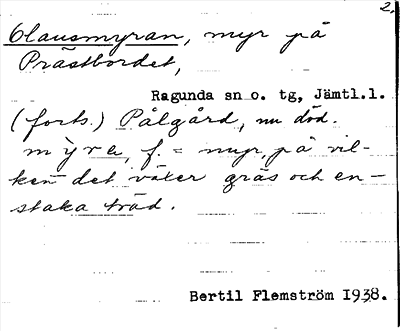 2.
Olausmyran, myr på
Prästbordet,
Ragunda sn o. tg, Jämtl.l.
(forts.) Pålgård, nu död.
mỳra, f. = myr, på vil-
ken det växer gräs och en-
staka träd.
Bertil Flemström 1938.